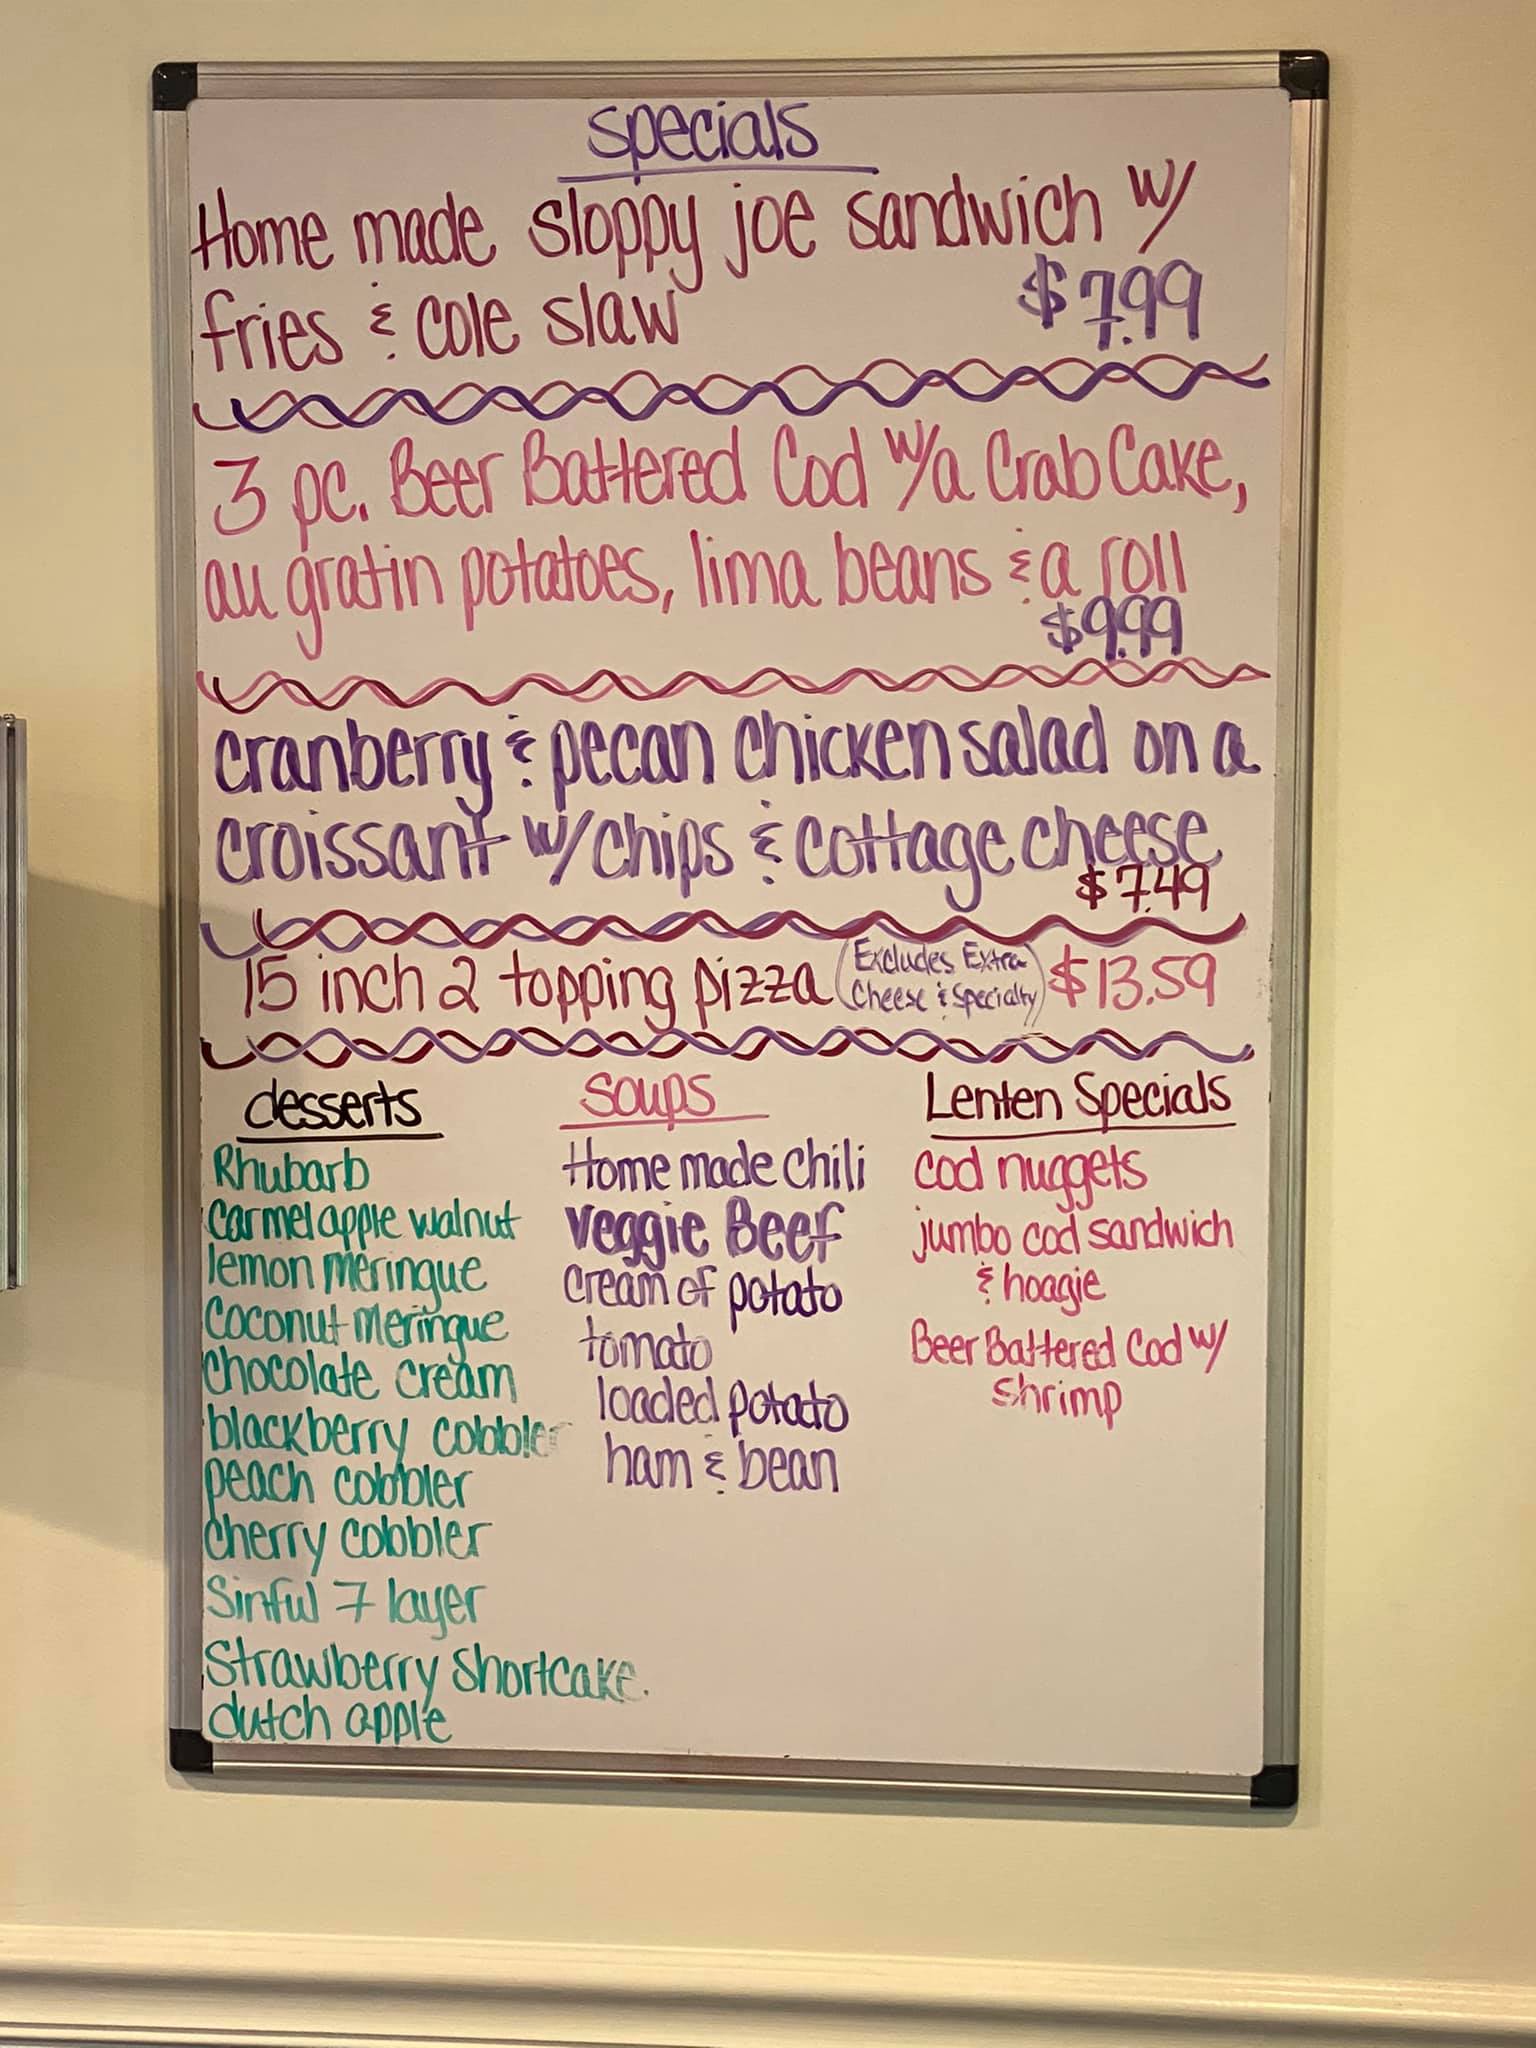 specials
Home made sloppy joe sandwich w/
fries & cole slaw
$7.99
3 pc. Beer Battered Cod w/a Crab Cake,
au gratin potatoes, lima beans & a roll
$9.99
cranberry & pecan chicken salad on a
croissant w/chips & cottage cheese
$7.49
15 inch 2 topping pizza (Excludes Extra
Cheese & Specialty) $13.59
desserts
Rhubarb
carmel apple walnut
lemon meringue
coconut meringue
chocolate cream
blackberry cobbler
peach cobbler
cherry cobbler
Sinful 7 layer
Strawberry shortcake
dutch apple
soups
Home made chili
veggie Beef
cream of potato
tomato
loaded potato
ham & bean
Lenten Specials
cod nuggets
jumbo cod sandwich
& hoagie
Beer Battered Cod w/
shrimp